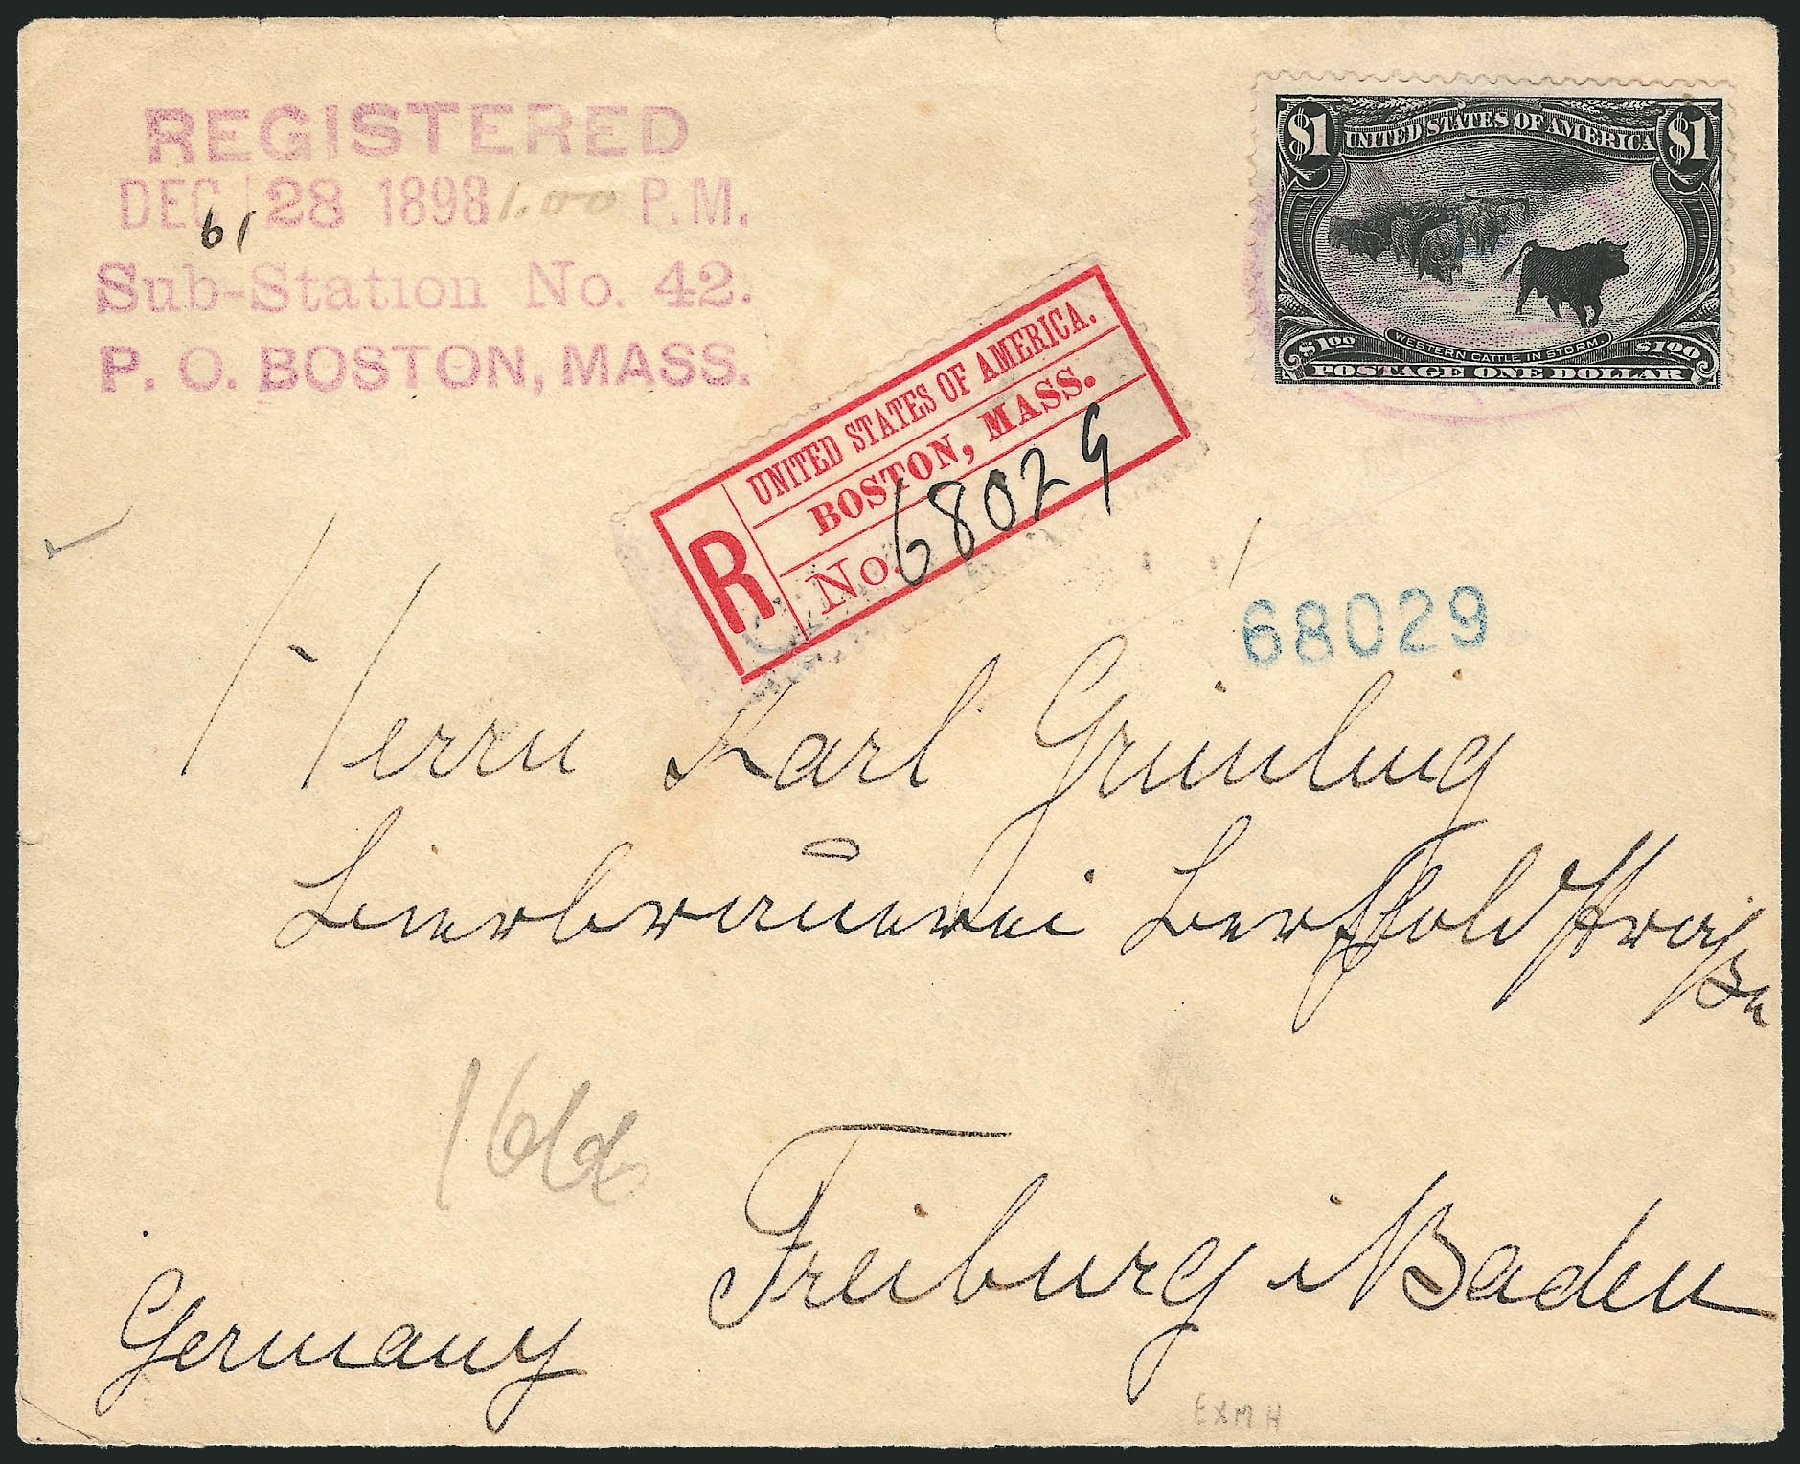 REGISTERED
DEC 28 1898 1.00 P.M.
61
Sub-Station No. 42.
P. O. BOSTON, MASS.
$1 UNITED STATES OF AMERICA $1
WESTERN CATTLE IN STORM.
$100 $100
POSTAGE ONE DOLLAR
R
UNITED STATES OF AMERICA.
BOSTON, MASS.
No. 68029
68029
Herrn Karl Grünling
Bierbrauerei Bertholdstraße
Freiburg i Baden
Germany
EXMH